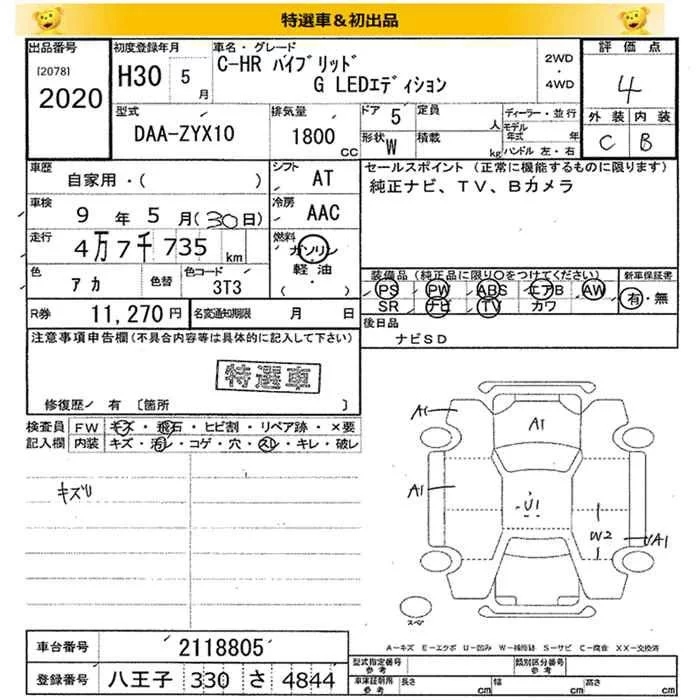 特選車＆初出品
出品番号
[2078]
2020
初度登録年月
H30 5月
車名・グレード
C-HR ハイブリッド
G LEDエディション
2WD
・
4WD
評価点
4
外装 内装
C B
型式
DAA-ZYX10
排気量
1800 CC
ドア 5
形状 W
定員 人
積載 kg
ディーラー・並行
モデル年式 年
ハンドル 左・右
車歴
自家用・( )
シフト
AT
車検
9年5月(30日)
冷房
AAC
走行
4万7千735km
燃料
ガソリン
軽油
( ・ )
色
アカ
色替
色コード
3T3
R券 11,270円
名変通知期限 月 日
セールスポイント (正常に機能するものに限ります)
純正ナビ、TV、Bカメラ
装備品 (純正品に限り〇をつけてください)
PS PW ABS エアB AW
SR ナビ TV カワ
新車保証書
有・無
後日品
ナビSD
注意事項申告欄(不具合内容等は具体的に記入して下さい)
特選車
修復歴／有 〔箇所 〕
検査員記入欄
FW キズ・飛石・ヒビ割・リペア跡・×要
内装 キズ・汚レ・コゲ・穴・スレ・キレ・破レ
キズU
A1
A1
A1
U1
W2
A1
スペア
A－キズ E－エクボ U－凹み W－補修跡 S－サビ C－腐食 XX－交換済
車台番号 2118805
登録番号 八王子 330 さ 4844
型式指定番号 参考
類別区分番号 参考
車庫証明用 参考
長さ cm
幅 cm
高さ cm